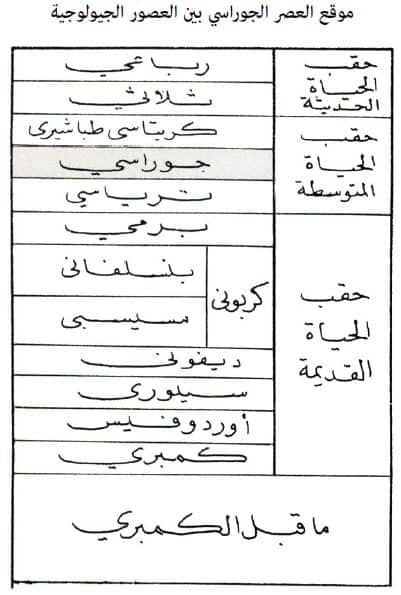 موقع العصر الجوراسي بين العصور الجيولوجية
حقب
الحياة
الحديثة
رباعي
ثلاثي
حقب
الحياة
المتوسطة
كريتاسى طباشيرى
جوراسي
ترياسي
حقب
الحياة
القديمة
برمي
كربونى
بنسلفانى
مسيسبى
ديفونى
سيلورى
أوردوفيس
كمبري
ما قبل الكمبري